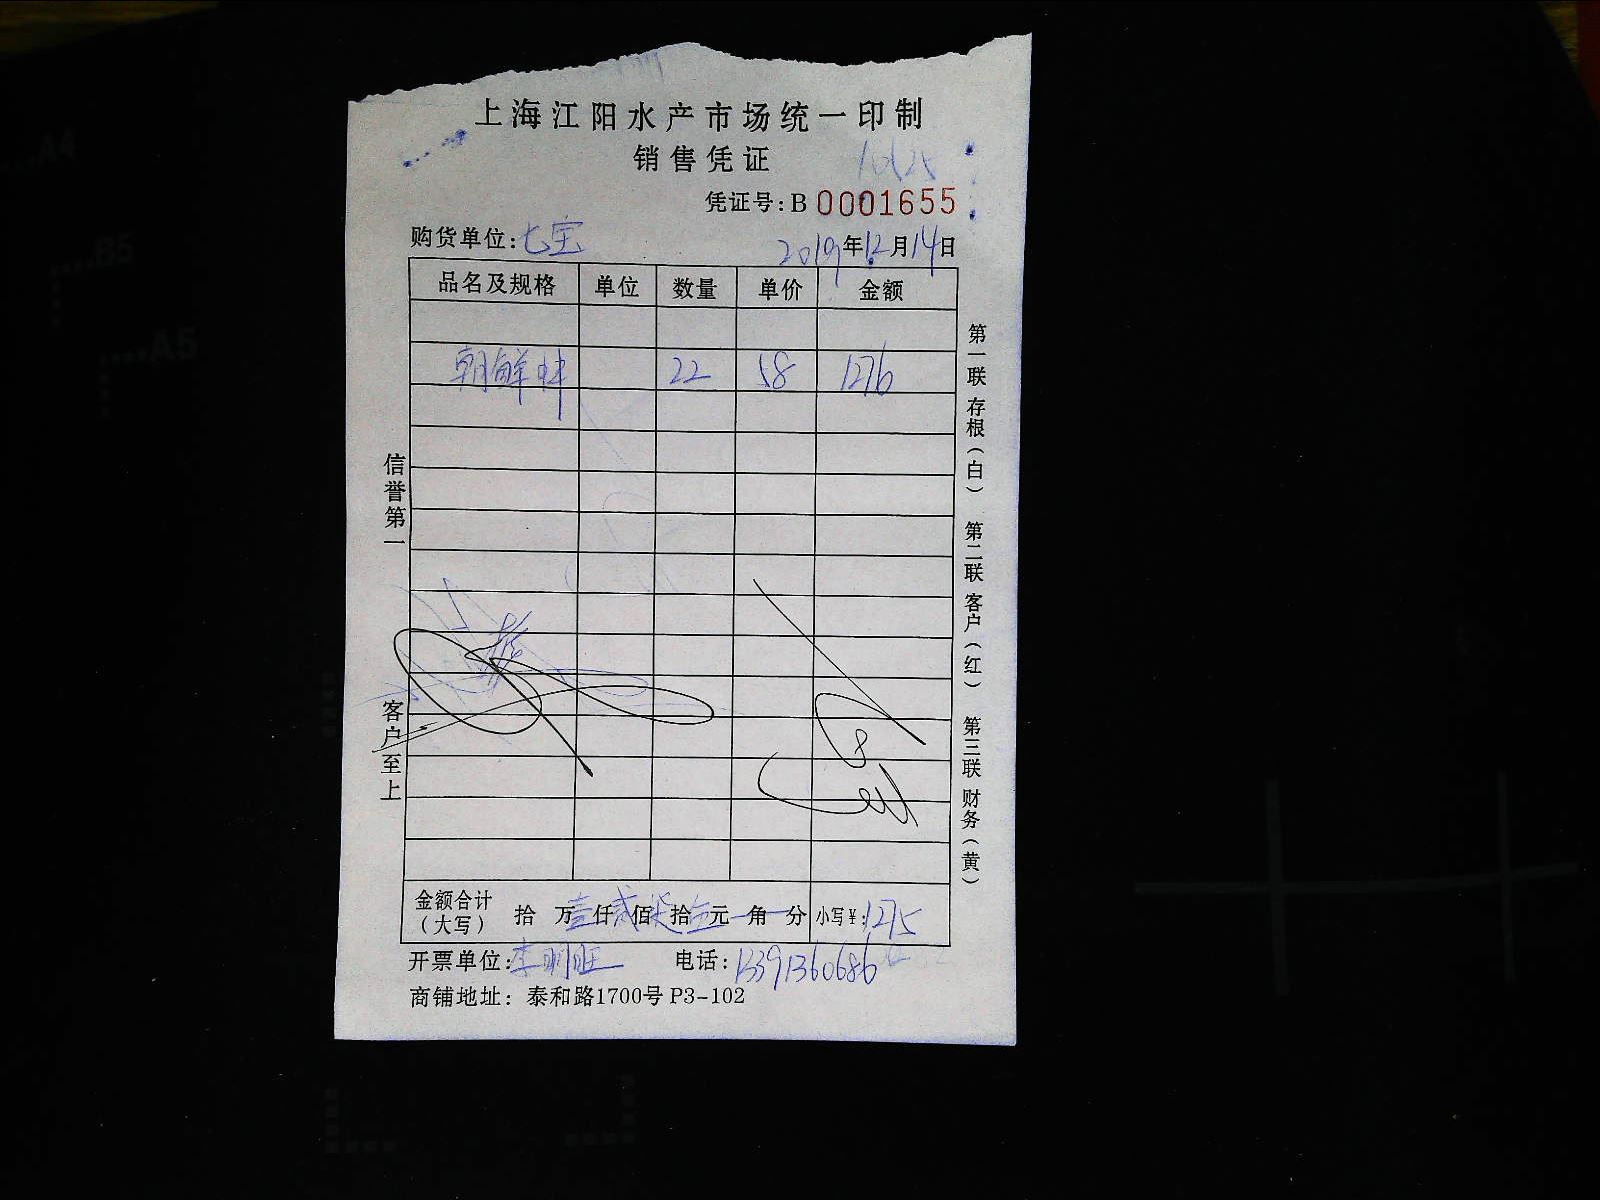 上海江阳水产市场统一印制
销售凭证
凭证号: B 0001655
购货单位:七宝 2019年12月14日
品名及规格 单位 数量 单价 金额
朝鲜蚌 22 58 1276
信誉第一
客户至上
第一联 存根(白) 第二联 客户(红) 第三联 财务(黄)
金额合计(大写) 拾 万壹仟贰佰柒拾伍元 角 分 小写¥: 1275
开票单位: 李明旺 电话: 13391360686
商铺地址: 泰和路1700号 P3-102
A4
B5
A5